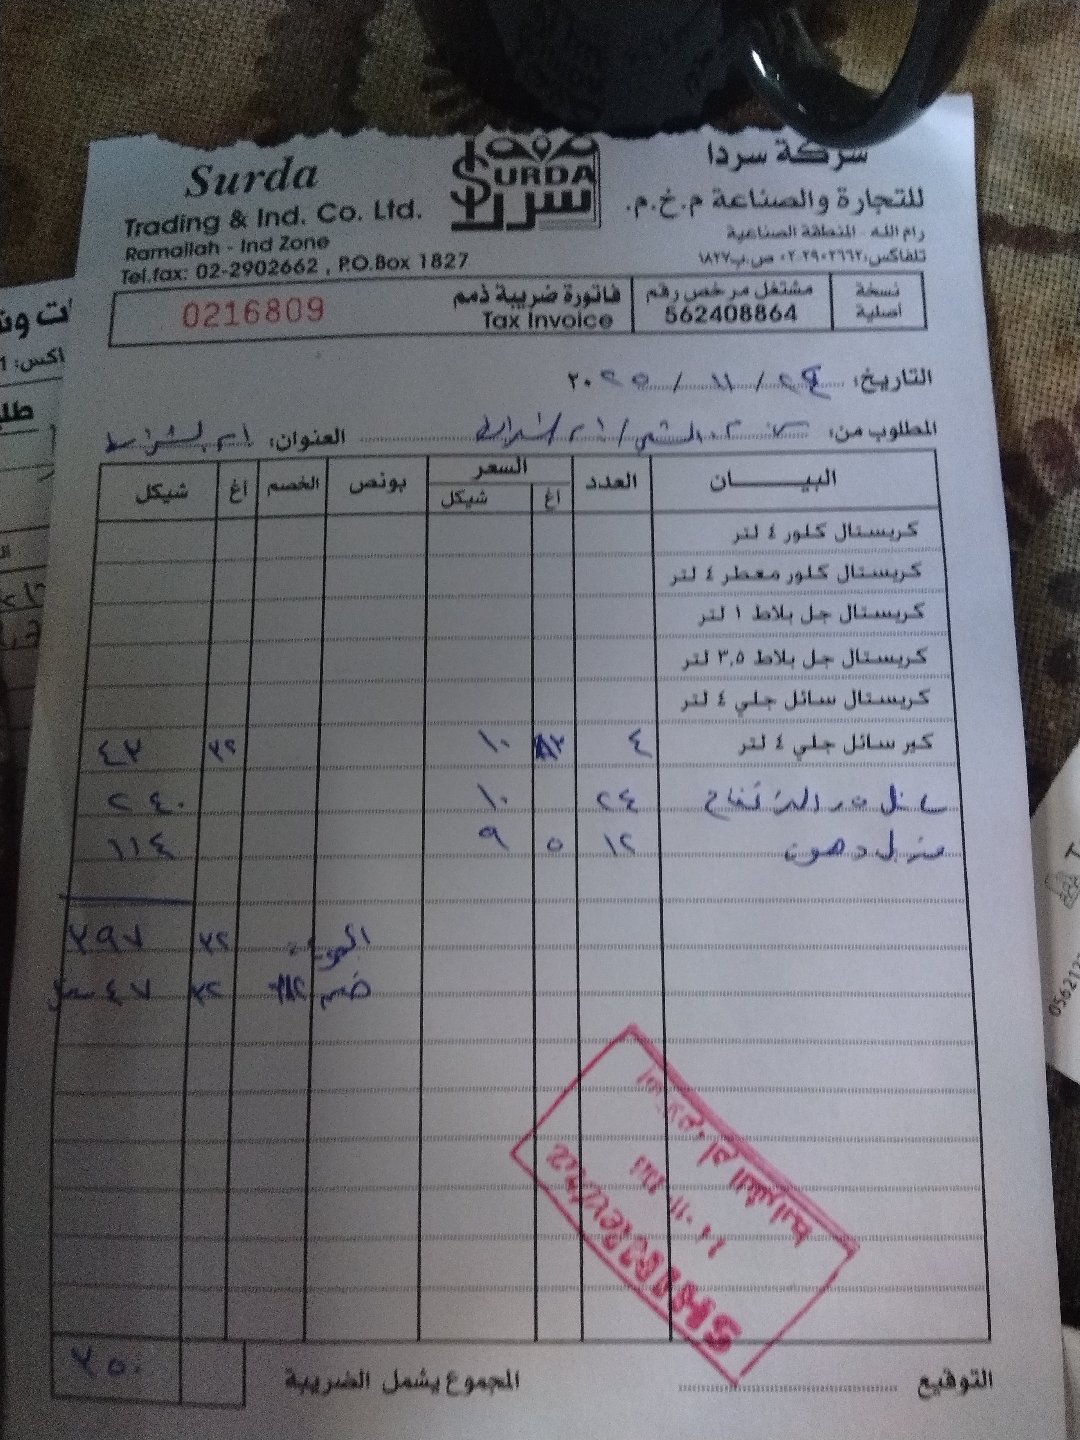 Surda
Trading & Ind. Co. Ltd.
Ramallah - Ind Zone
Tel.fax: 02-2902662 , P.O.Box 1827
SURDA
سردا
شركة سردا
للتجارة والصناعة م.خ.م.
رام الله - المنطقة الصناعية
تلفاكس: ٠٢-٢٩٠٢٦٦٢ ص.ب ١٨٢٧
نسخة أصلية
مشتغل مرخص رقم
562408864
فاتورة ضريبة ذمم
Tax Invoice
0216809
التاريخ: ٢٤ / ١١ / ٢٠٢٥
المطلوب من: / ام الشرايط العنوان: ام الشرايط
البيــــــان العدد السعر بونص الخصم اغ شيكل
اغ شيكل
كريستال كلور ٤ لتر
كريستال كلور معطر ٤ لتر
كريستال جل بلاط ١ لتر
كريستال جل بلاط ٣,٥ لتر
كريستال سائل جلي ٤ لتر
كير سائل جلي ٤ لتر ٤ ٨٣ ١٠ ٣٢ ٤٣
سائل تفاح ٢٤ ١٠ ٢٤٠
مزيل دهون ١٢ ٥ ٩ ١١٤
المجموع ٣٢ ٣٩٧
خصم ٣٢ ٤٧
المجموع يشمل الضريبة ٣٥٠
التوقيع
ام الشرايط